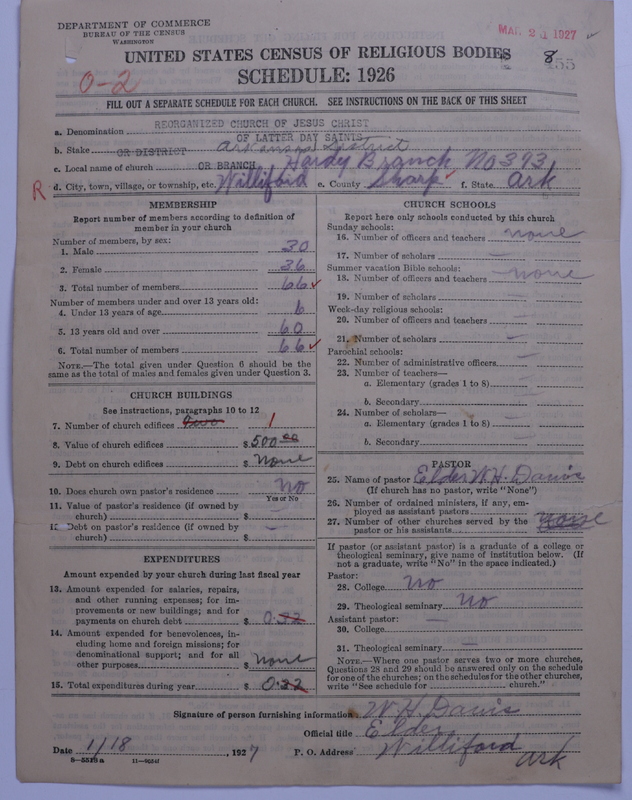 DEPARTMENT OF COMMERCE
BUREAU OF THE CENSUS
WASHINGTON
MAR 21 1927
UNITED STATES CENSUS OF RELIGIOUS BODIES
8
455
0-2
SCHEDULE: 1926
FILL OUT A SEPARATE SCHEDULE FOR EACH CHURCH. SEE INSTRUCTIONS ON THE BACK OF THIS SHEET
a. Denomination REORGANIZED CHURCH OF JESUS CHRIST
OF LATTER DAY SAINTS
b. Stake OR DISTRICT Arkansas District
c. Local name of church OR BRANCH Hardy Branch No 393
R d. City, town, village, or township, etc. Williford e. County Sharp f. State Ark
MEMBERSHIP
Report number of members according to definition of
member in your church
Number of members, by sex:
1. Male 30
2. Female 36
3. Total number of members 66
Number of members under and over 13 years old:
4. Under 13 years of age 6
5. 13 years old and over 60
6. Total number of members 66
NOTE.—The total given under Question 6 should be the
same as the total of males and females given under Question 3.
CHURCH BUILDINGS
See instructions, paragraphs 10 to 12
7. Number of church edifices 1
8. Value of church edifices $ 500 00
9. Debt on church edifices $ None
10. Does church own pastor's residence No
Yes or No
11. Value of pastor's residence (if owned by
church) $ —
12. Debt on pastor's residence (if owned by
church) $ —
EXPENDITURES
Amount expended by your church during last fiscal year
13. Amount expended for salaries, repairs,
and other running expenses; for im-
provements or new buildings; and for
payments on church debt $ 032
14. Amount expended for benevolences, in-
cluding home and foreign missions; for
denominational support; and for all
other purposes $ None
15. Total expenditures during year $ 032
CHURCH SCHOOLS
Report here only schools conducted by this church
Sunday schools:
16. Number of officers and teachers none
17. Number of scholars —
Summer vacation Bible schools:
18. Number of officers and teachers none
19. Number of scholars —
Week-day religious schools:
20. Number of officers and teachers —
21. Number of scholars —
Parochial schools:
22. Number of administrative officers —
23. Number of teachers—
a. Elementary (grades 1 to 8) —
b. Secondary —
24. Number of scholars—
a. Elementary (grades 1 to 8) —
b. Secondary —
PASTOR
25. Name of pastor Elder W. H. Davis
(If church has no pastor, write "None")
26. Number of ordained ministers, if any, em-
ployed as assistant pastors
27. Number of other churches served by the
pastor or his assistants none
If pastor (or assistant pastor) is a graduate of a college or
theological seminary, give name of institution below. (If
not a graduate, write "No" in the space indicated.)
Pastor:
28. College No
29. Theological seminary No
Assistant pastor:
30. College —
31. Theological seminary —
NOTE.—Where one pastor serves two or more churches,
Questions 28 and 29 should be answered only on the schedule
for one of the churches; on the schedules for the other churches,
write "See schedule for church."
Signature of person furnishing information W. H. Davis
Official title Elder
Date 1/18, 1927 P. O. Address Williford Ark
8—5518 a 11—